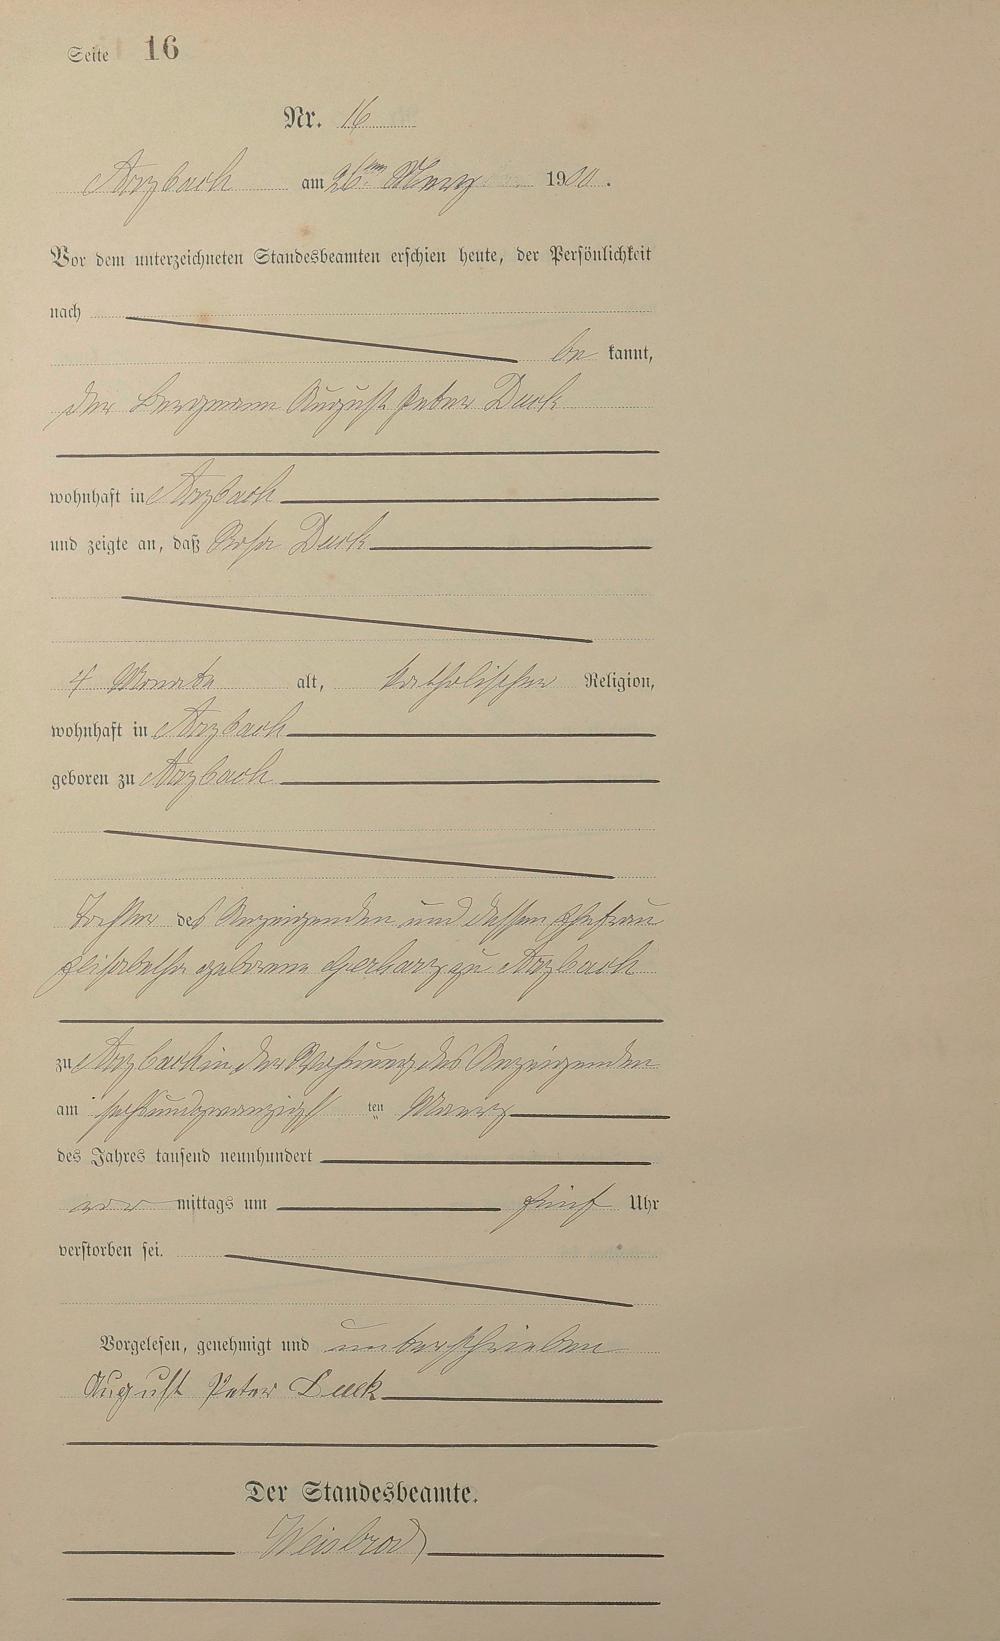 Seite 16
Nr. 16
Arzbach am 26ten Maerz 1900.
Vor dem unterzeichneten Standesbeamten erschien heute, der Persönlichkeit
nach
be kannt,
der Bergmann August Peter Duck
wohnhaft in Arzbach
und zeigte an, daß Rosa Duck
4 Monate alt, katholischer Religion,
wohnhaft in Arzbach
geboren zu Arzbach
Tochter des Anzeigenden und dessen Ehefrau
Elisabetha geborene Gerharz zu Arzbach
zu Arzbach in der Wohnung des Anzeigenden
am sechsundzwanzigs ten Maerz
des Jahres tausend neunhundert
vor mittags um fünf Uhr
verstorben sei.
Vorgelesen, genehmigt und unterschrieben
August Peter Duck
Der Standesbeamte.
Weisbrod